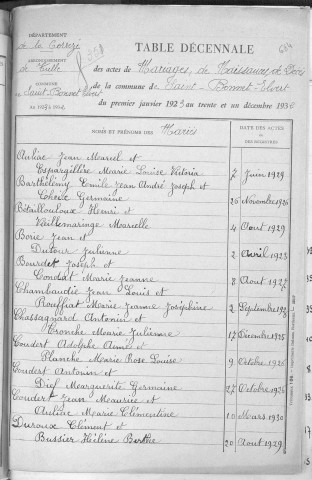 DÉPARTEMENT
de la Corrèze
ARRONDISSEMENT
de Tulle
COMMUNE
de Saint Bonnet Elvert
TABLE DÉCENNALE
des actes de Mariages, de Naissances, de Décès
de la commune de Saint-Bonnet-Elvert
du premier janvier 1923 au trente et un décembre 1932
NOMS ET PRÉNOMS DES Mariés
DATE DES ACTES
Auliac Jean Marcel et
Espargillère Marie Louise Victoria 7 Juin 1929
Barthélémy Emile Jean André Joseph et
Germaine 26 Novembre 1926
Bétaillouloux Henri et
Vieillemaringe Marcelle 4 Aout 1929
Borie Jean et
Dufour Julienne 2 Avril 1923
Bourdet Joseph et
Condat Marie Jeanne 8 Aout 1927
Chambaudie Jean Louis et
Rouffiat Marie Jeanne Joséphine 2 Septembre
Chassagnard Antonin et
Cronche Marie Julienne 17 Décembre
Coudert Adolphe Aimé et
Planche Marie Rose Louise 9 Octobre 1926
Coudert Antonin et
Dief Marguerite Germaine 27 Octobre
Coudert Jean Maurice et
Auliac Marie Clémentine 10 Mars 1930
Duroux Clément et
Bussier Hélène Berthe 20 Aout 1929